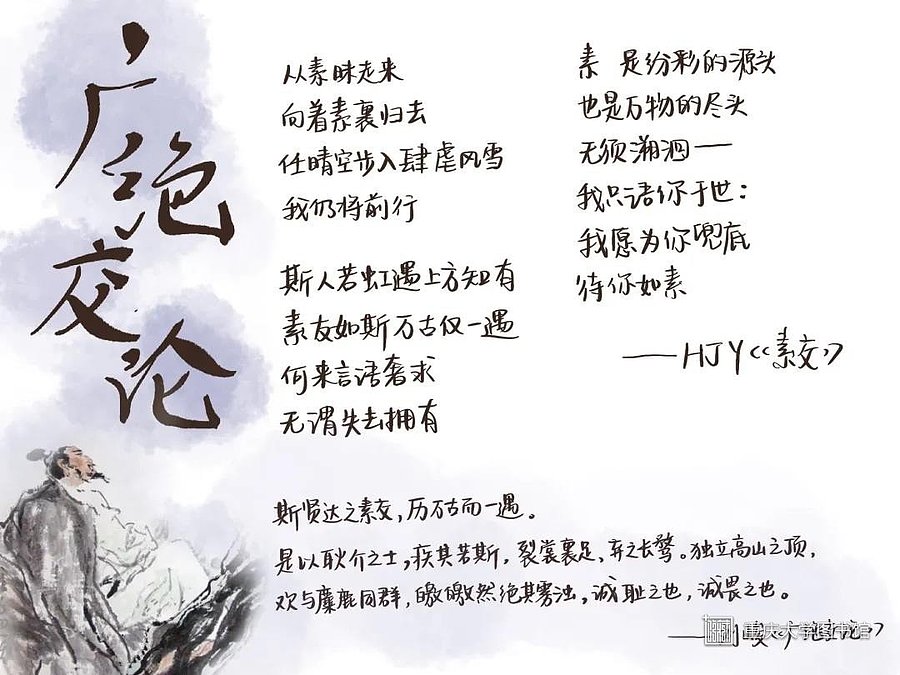 广绝交论
从素昧走来
向着素裹归去
任晴空步入肆虐风雪
我仍将前行
斯人若虹遇上方知有
素友如斯万古仅一遇
何来言语奢求
无谓失去拥有
素 是纷彩的源头
也是万物的尽头
无须溯洄——
我只语你于世：
我愿为你兜底
待你如素
——HJY《素交》
斯贤达之素交，历万古而一遇。
是以耿介之士，疾其若斯，裂裳裹足、弃之长骛。独立高山之顶，
欢与麋鹿同群，皦皦然绝其雰浊，诚耻之也，诚畏之也。
重庆大学图书馆